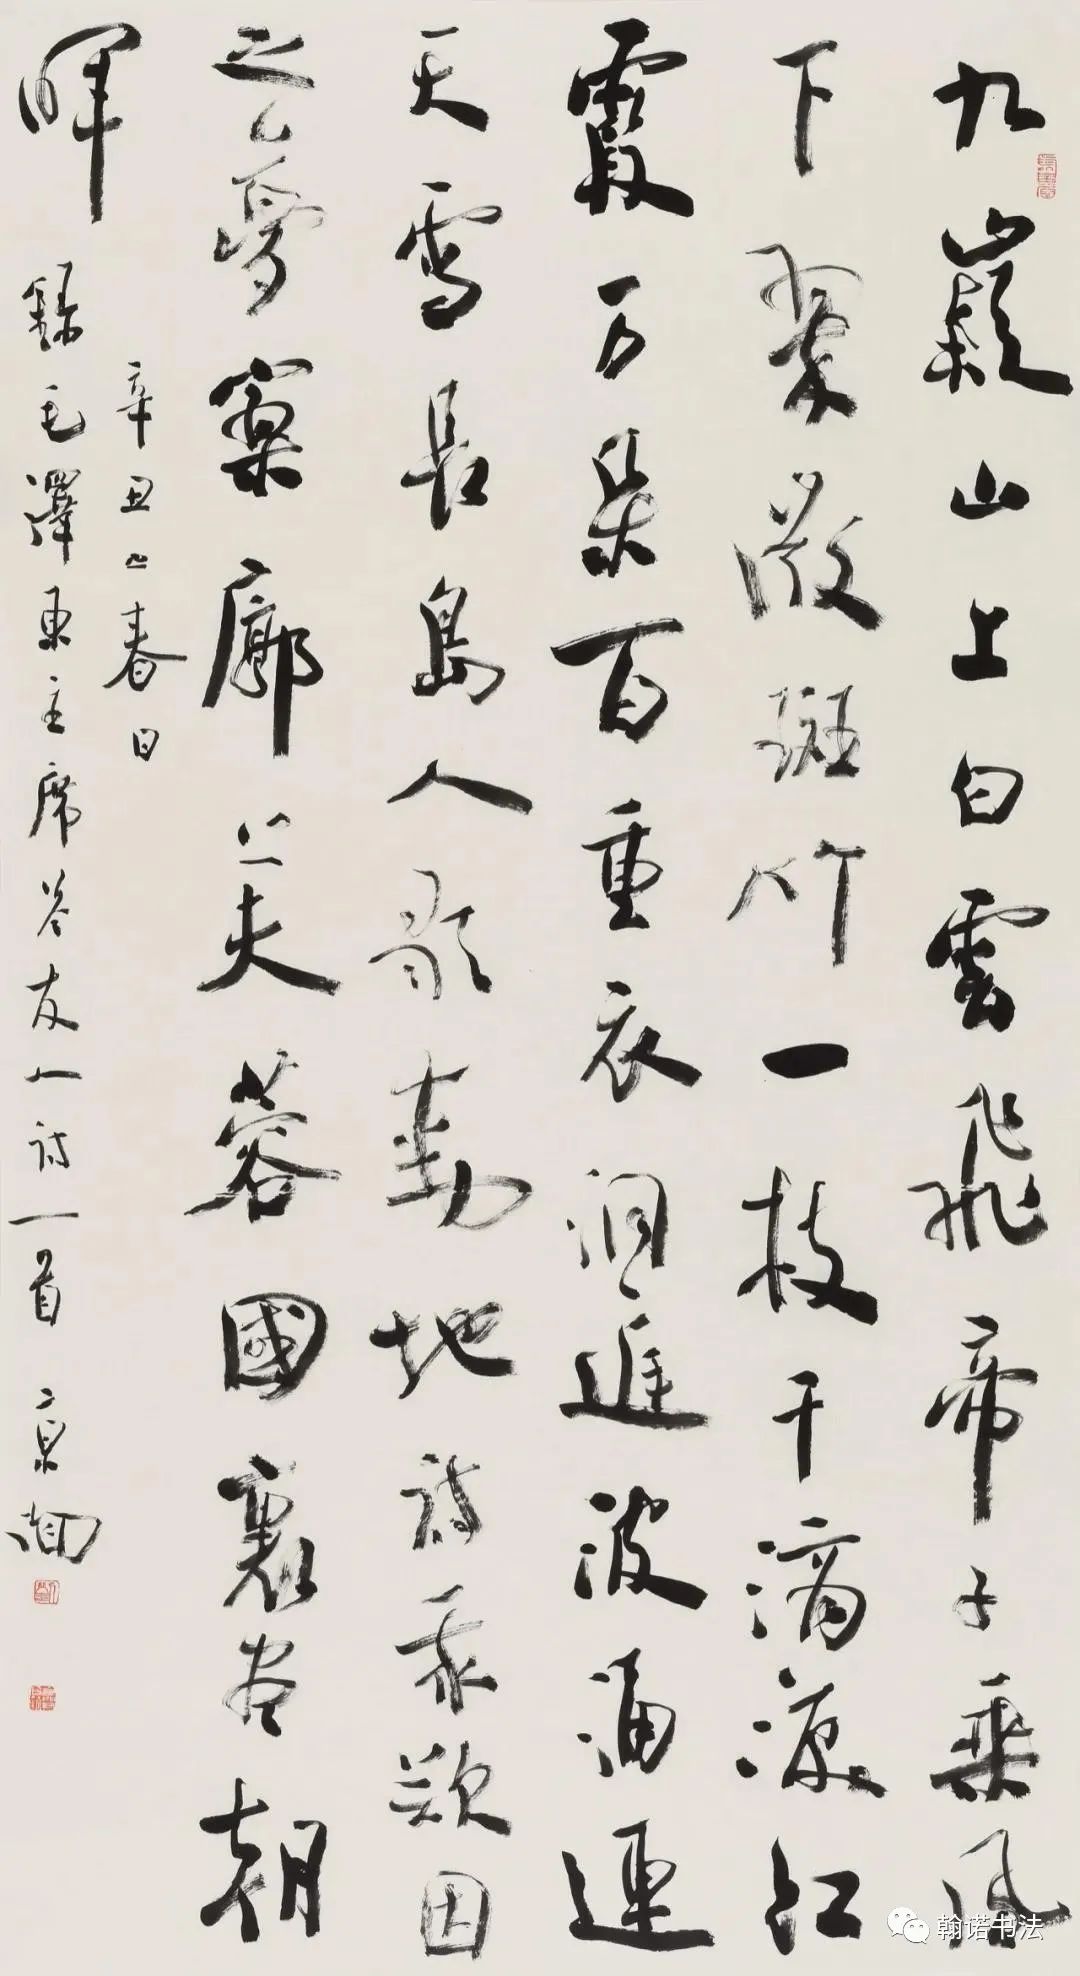 九嶷山上白雲飛帝子乘風
下翠微斑竹一枝千滴淚红
霞万朵百重衣洞庭波涌連
天雪長島人歌動地詩我欲因
之夢寥廓芙蓉國裏盡朝
暉
辛丑之春日
錄毛澤東主席答友人詩一首
翰诺书法